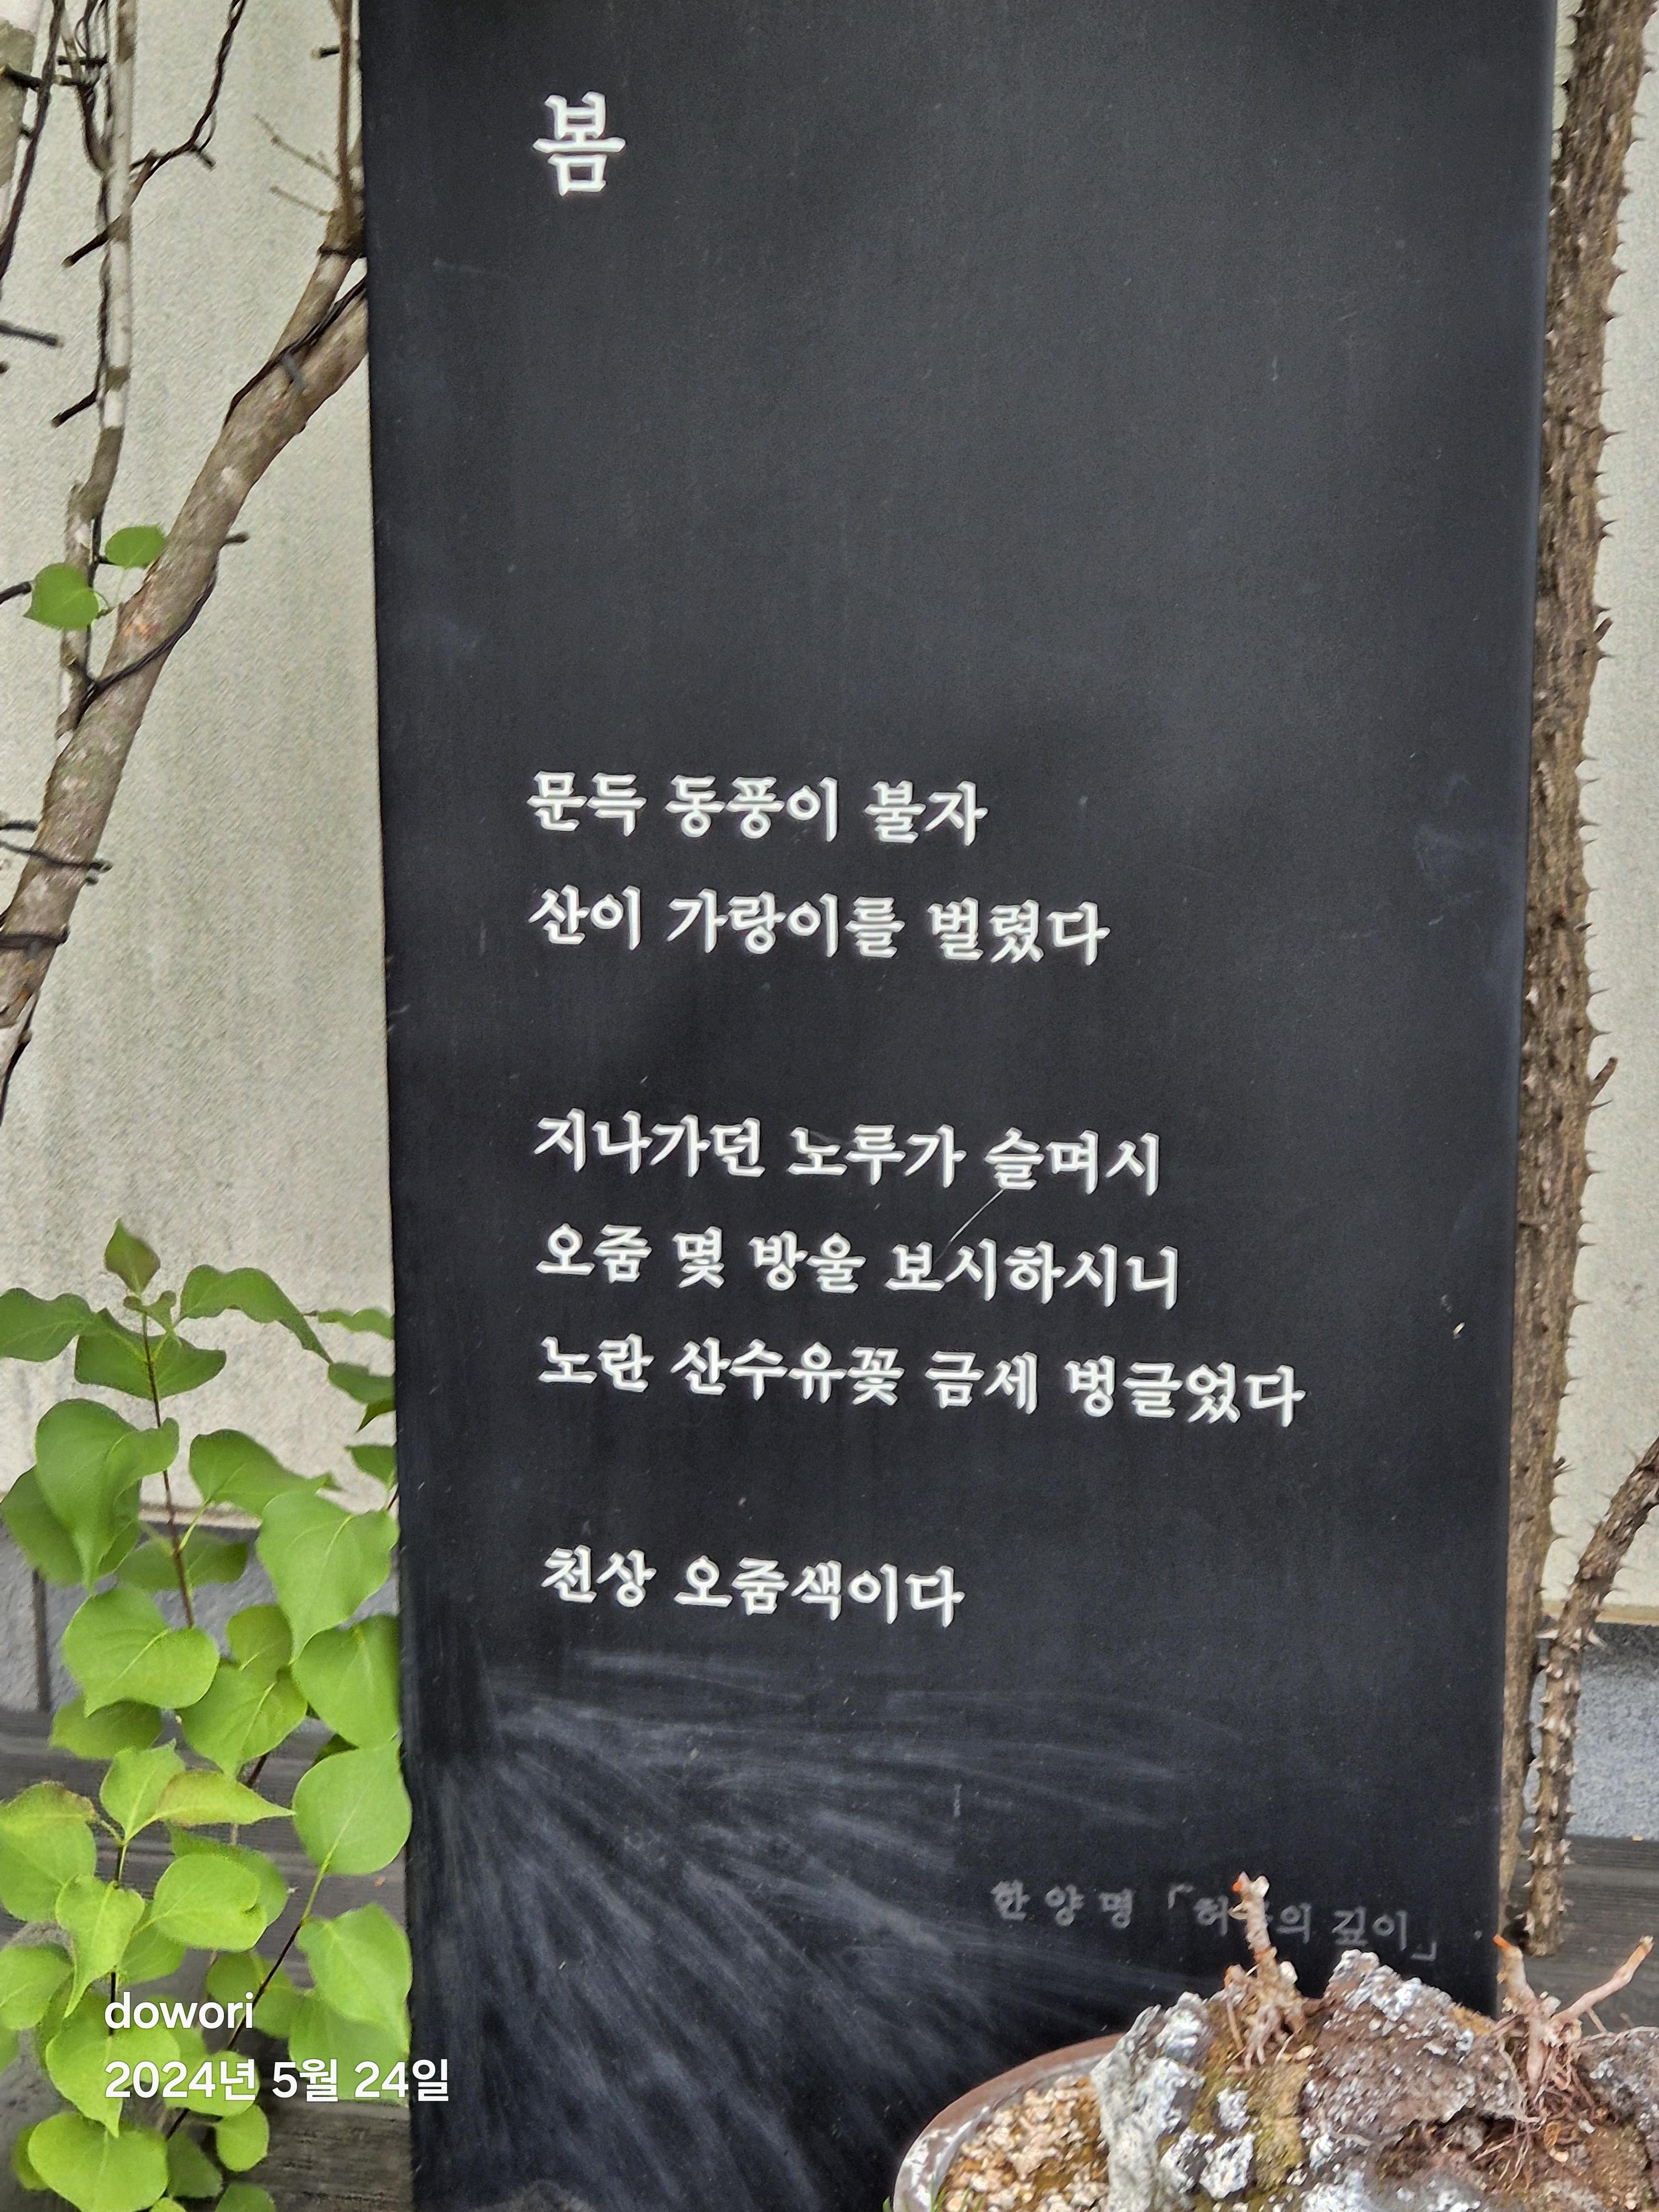 봄
문득 동풍이 불자
산이 가랑이를 벌렸다
지나가던 노루가 슬며시
오줌 몇 방울 보시하시니
노란 산수유꽃 금세 벙글었다
천상 오줌색이다
한양명 「 깊이」
dowori
2024년 5월 24일